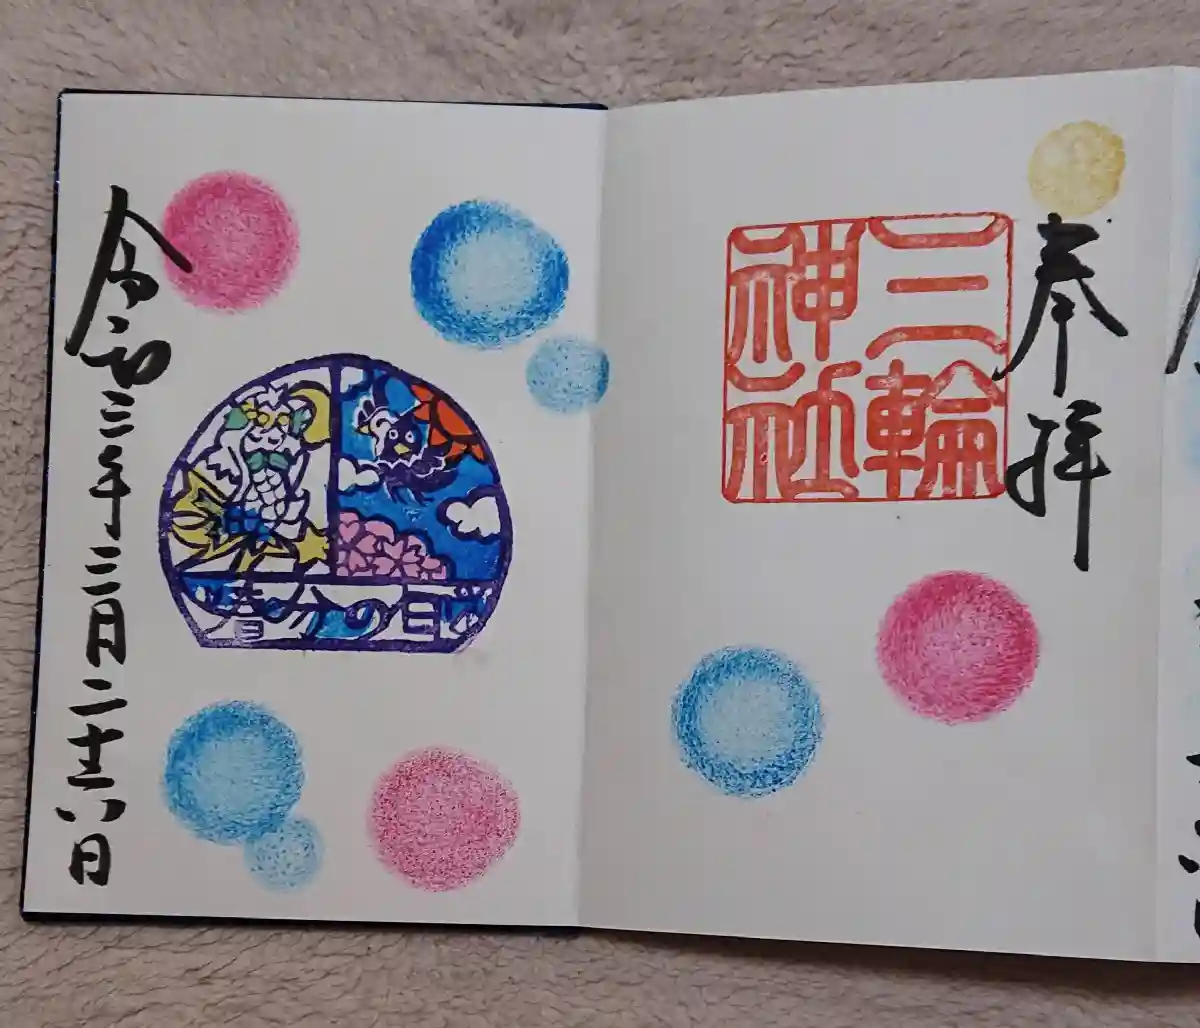 奉拝
三輪
神社
春分の日
令和三年三月二十六日